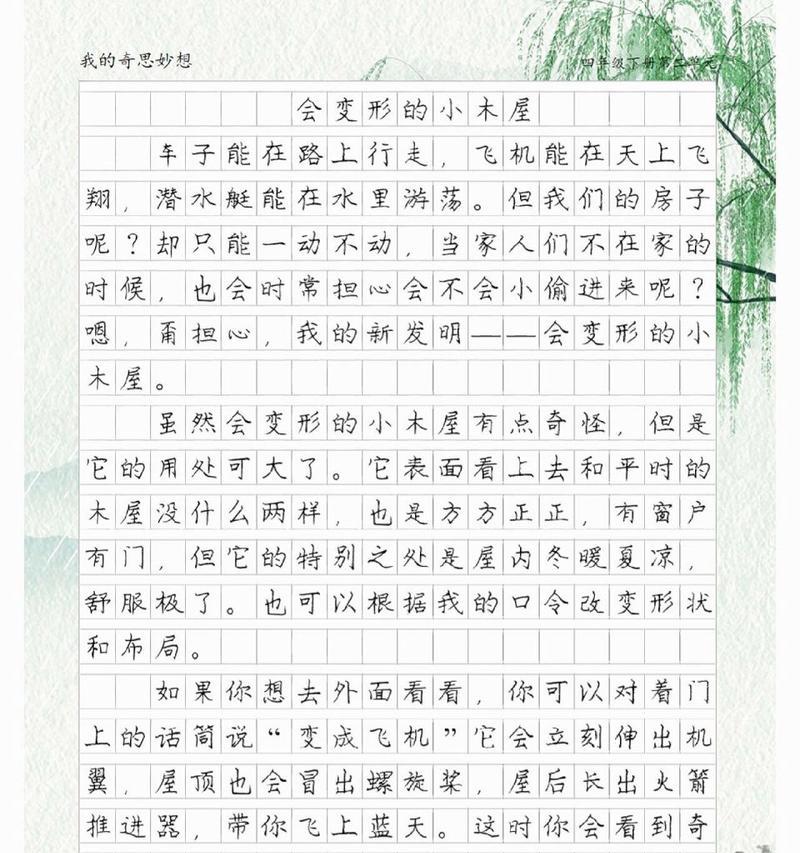 我的奇思妙想
四年级下册第二单元
会变形的小木屋
车子能在路上行走，飞机能在天上飞
翔，潜水艇能在水里游荡。但我们的房子
呢？却只能一动不动，当家人们不在家的
时候，也会时常担心会不会小偷进来呢？
嗯，甭担心，我的新发明——会变形的小
木屋。
虽然会变形的小木屋有点奇怪，但是
它的用处可大了。它表面看上去和平时的
木屋没什么两样，也是方方正正，有窗户
有门，但它的特别之处是屋内冬暖夏凉，
舒服极了。也可以根据我的口令改变形状
和布局。
如果你想去外面看看，你可以对着门
上的话筒说“变成飞机”它会立刻伸出机
翼，屋顶也会冒出螺旋桨，屋后长出火箭
推进器，带你飞上蓝天。这时你会看到奇